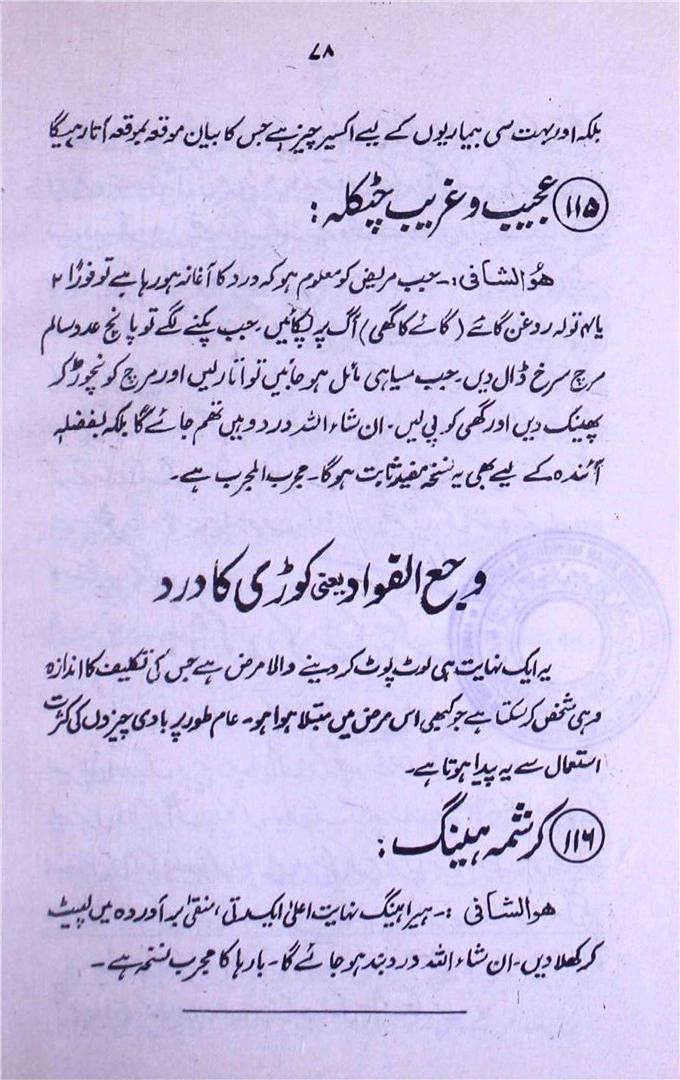 ۷۸
بلکہ اور بہت سی بیماریوں کے لیے اکسیر چیز ہے جس کا بیان موقعہ بموقعہ آتا رہیگا
۱۱۵ عجیب و غریب چٹکلہ :
ھُوالشافی :۔ جب مریض کو معلوم ہو کہ درد کا آغاز ہو رہا ہے تو فوراً ۲
یا ۴ تولہ روغن گائے (گائے کا گھی) آگ پر پکائیں۔ جب پکنے لگے تو پانچ عدد سالم
مرچ سرخ ڈال دیں۔ جب سیاہی مائل ہو جائیں تو اتار لیں اور مرچ کو نچوڑ کر
پھینک دیں اور گھی کو پی لیں۔ ان شاء اللہ درد وہیں تھم جائے گا بلکہ بفضلہٖ
آئندہ کے لیے بھی یہ نسخہ مفید ثابت ہوگا۔ مجرب المجرب ہے۔
وجع الفواد یعنی کوڑی کا درد
یہ ایک نہایت ہی لوٹ پوٹ کر دینے والا مرض ہے جس کی تکلیف کا اندازہ
وہی شخص کر سکتا ہے جو کبھی اس مرض میں مبتلا ہوا ہو۔ عام طور پر بادی چیزوں کی کثرت
استعمال سے یہ پیدا ہوتا ہے۔
۱۱۶ کرشمہ ہینگ :
ھوالشافی :۔ ہیرا ہینگ نہایت اعلیٰ ایک رتی، منقیٰ بر آوردہ میں لپیٹ
کر کھلا دیں۔ ان شاء اللہ درد بند ہو جائے گا۔ بارہا کا مجرب نسخہ ہے۔